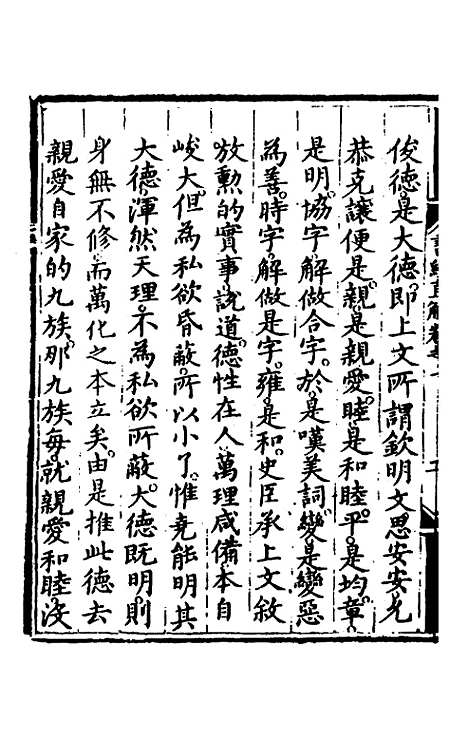 俊德是大德即上文所謂欽明文思安安允
恭克讓便是親是親愛睦是和睦平是均章
是明協字解做合字於是嘆美詞變是變惡
為善時字解做是字雍是和史臣承上文敘
放勲的實事說道德性在人萬理咸備本自
峻大但為私欲昏蔽所以小了惟堯能明其
大德渾然天理不為私欲所蔽大德既明則
身無不修而萬化之本立矣由是推此德去
親愛自家的九族那九族每就親愛和睦沒